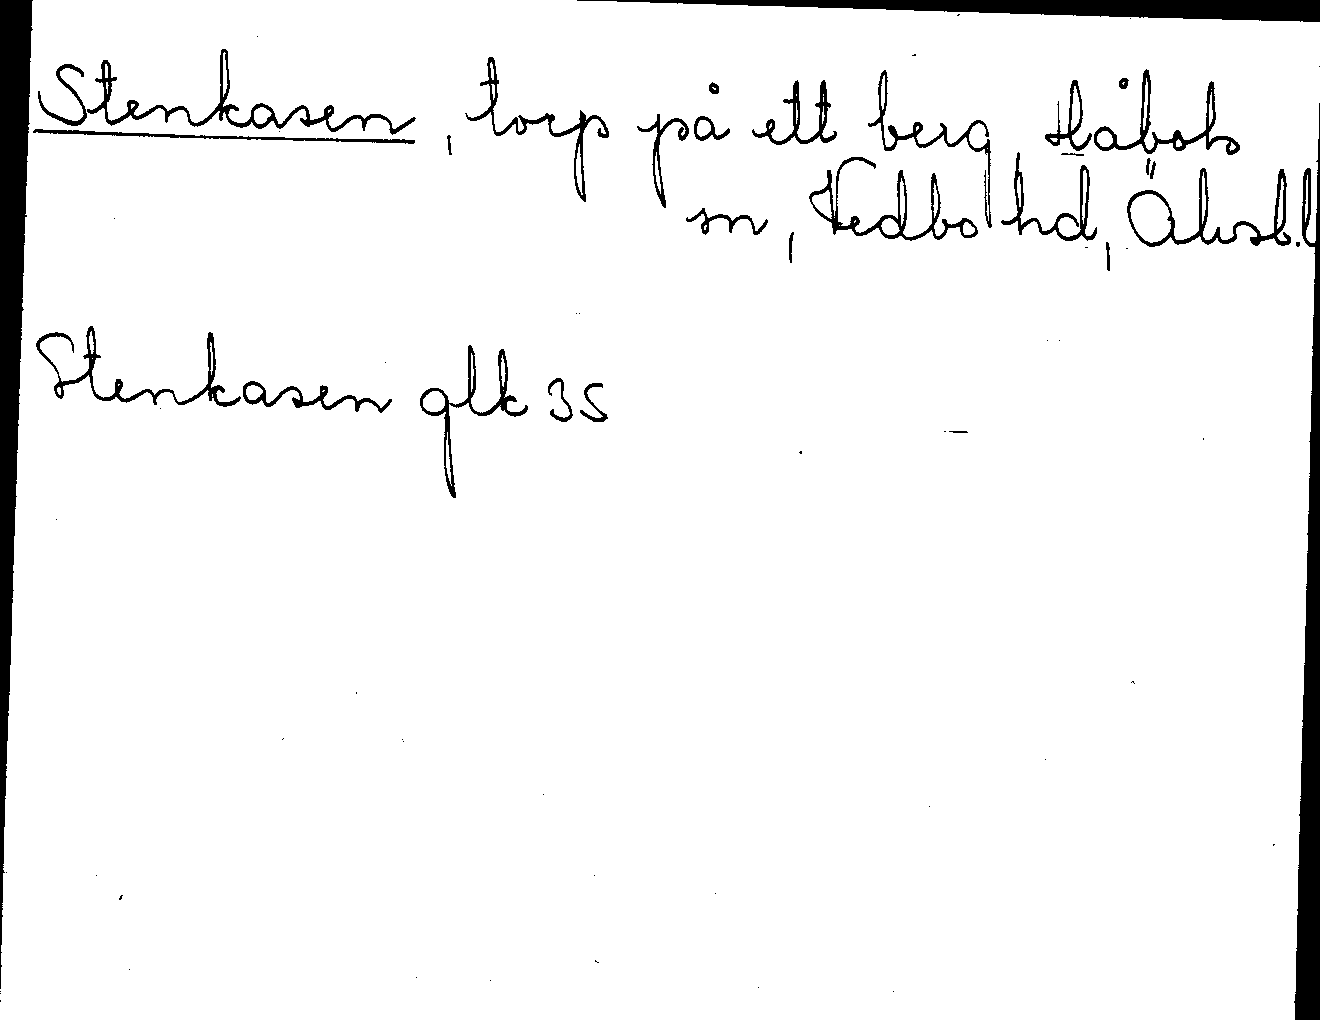 Stenkasen, torp på ett berg, Håbols
sn, Vedbo hd, Älvsb.l
Stenkasen glk 35